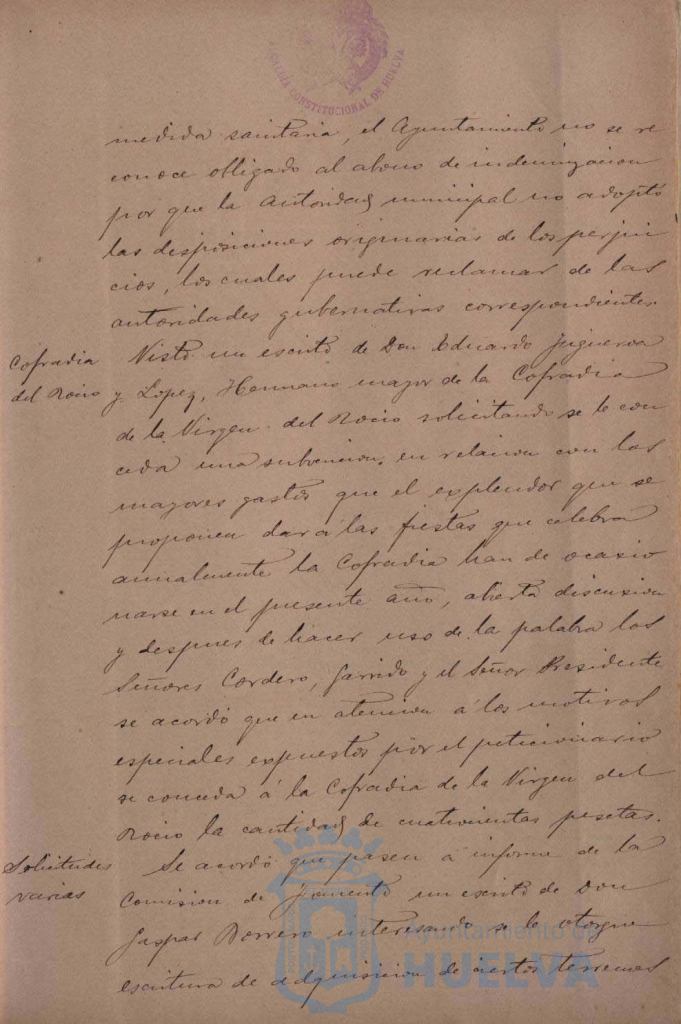 ALCALDIA CONSTITUCIONAL DE HUELVA
medida sanitaria, el Ayuntamiento no se re
conoce obligado al abono de indemnizacion
por que la autoridad municipal no adoptó
las disposiciones originarias de los perjui
cios, los cuales puede reclamar de las
autoridades gubernativas correspondientes.
Cofradia
del Rocio
Visto un escrito de Don Eduardo Figueroa
y Lopez, Hermano mayor de la Cofradia
de la Virgen del Rocio solicitando se le con
ceda una subvencion, en relacion con los
mayores gastos que el explendor que se
proponen dar á las fiestas que celebra
anualmente la Cofradia han de ocasio
narse en el presente año, abierta discusion
y despues de hacer uso de la palabra los
Señores Cordero, Garrido y el Señor Presidente
se acordó que en atencion á los motivos
especiales expuestos por el peticionario
se conceda á la Cofradia de la Virgen del
Rocio la cantidad de cuatrocientas pesetas.
Solicitudes
varias
Se acordó que pasen á informe de la
Comision de Fomento un escrito de Don
Gaspar Borrero interesando se le otorgue
escritura de adquisicion de ciertos terrenos
Ayuntamiento de
HUELVA